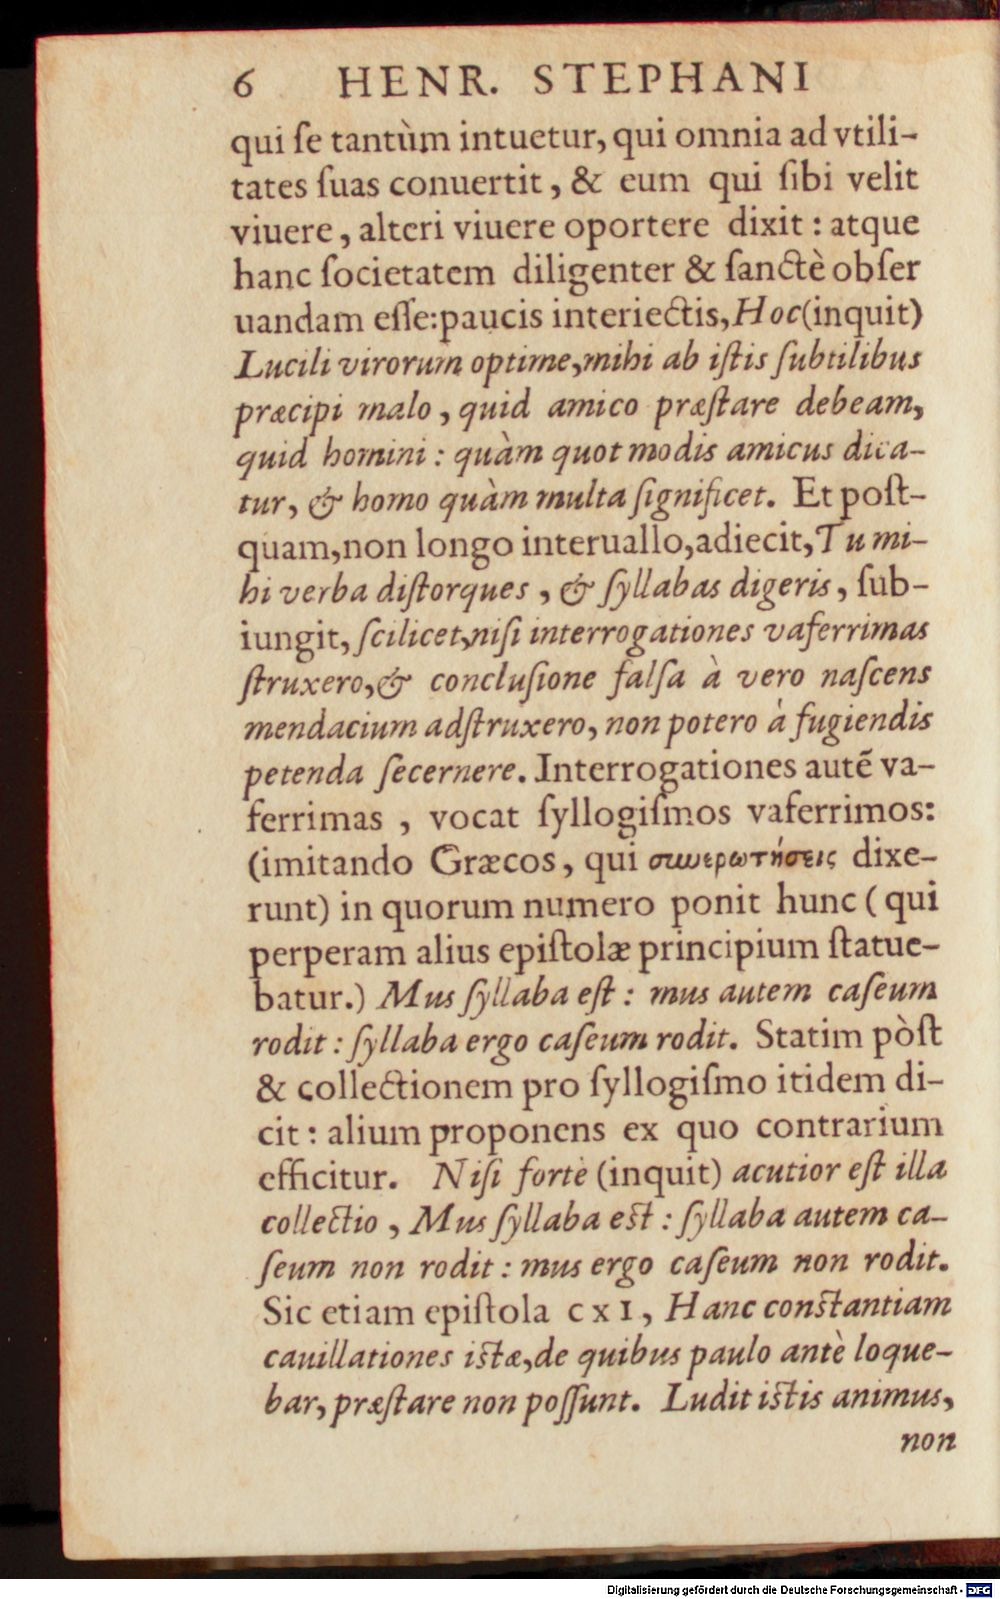 6 HENR. STEPHANI
qui ſe tantùm intuetur, qui omnia ad vtili-
tates ſuas conuertit, & eum qui ſibi velit
viuere, alteri viuere oportere dixit: atque
hanc ſocietatem diligenter & ſanctè obſer
uandam eſſe: paucis interiectis, Hoc (inquit)
Lucili virorum optime, mihi ab iſtis ſubtilibus
præcipi malo, quid amico præſtare debeam,
quid homini: quàm quot modis amicus dica-
tur, & homo quàm multa ſignificet. Et poſt-
quam, non longo interuallo, adiecit, Tu mi-
hi verba diſtorques, & ſyllabas digeris, ſub-
iungit, ſcilicet, niſi interrogationes vaferrimas
ſtruxero, & concluſione falſa à vero naſcens
mendacium adſtruxero, non potero à fugiendis
petenda ſecernere. Interrogationes autẽ va-
ferrimas, vocat ſyllogiſmos vaferrimos:
(imitando Græcos, qui συνερωτήσεις dixe-
runt) in quorum numero ponit hunc (qui
perperam alius epiſtolæ principium ſtatue-
batur.) Mus ſyllaba eſt: mus autem caſeum
rodit: ſyllaba ergo caſeum rodit. Statim pòſt
& collectionem pro ſyllogiſmo itidem di-
cit: alium proponens ex quo contrarium
efficitur. Niſi fortè (inquit) acutior eſt illa
collectio, Mus ſyllaba eſt: ſyllaba autem ca-
ſeum non rodit: mus ergo caſeum non rodit.
Sic etiam epiſtola CXI, Hanc conſtantiam
cauillationes iſtæ, de quibus paulo antè loque-
bar, præſtare non poſſunt. Ludit iſtis animus,
non
Digitalisierung gefördert durch die Deutsche Forschungsgemeinschaft - DFG